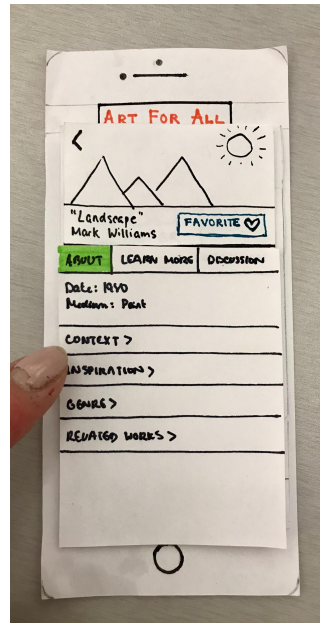 ART FOR ALL
"Landscape"
Mark Williams
FAVORITE
ABOUT
LEARN MORE
DISCUSSION
Date: 1950
Medium: Paint
CONTEXT >
INSPIRATION >
GENRE >
RELATED WORKS >